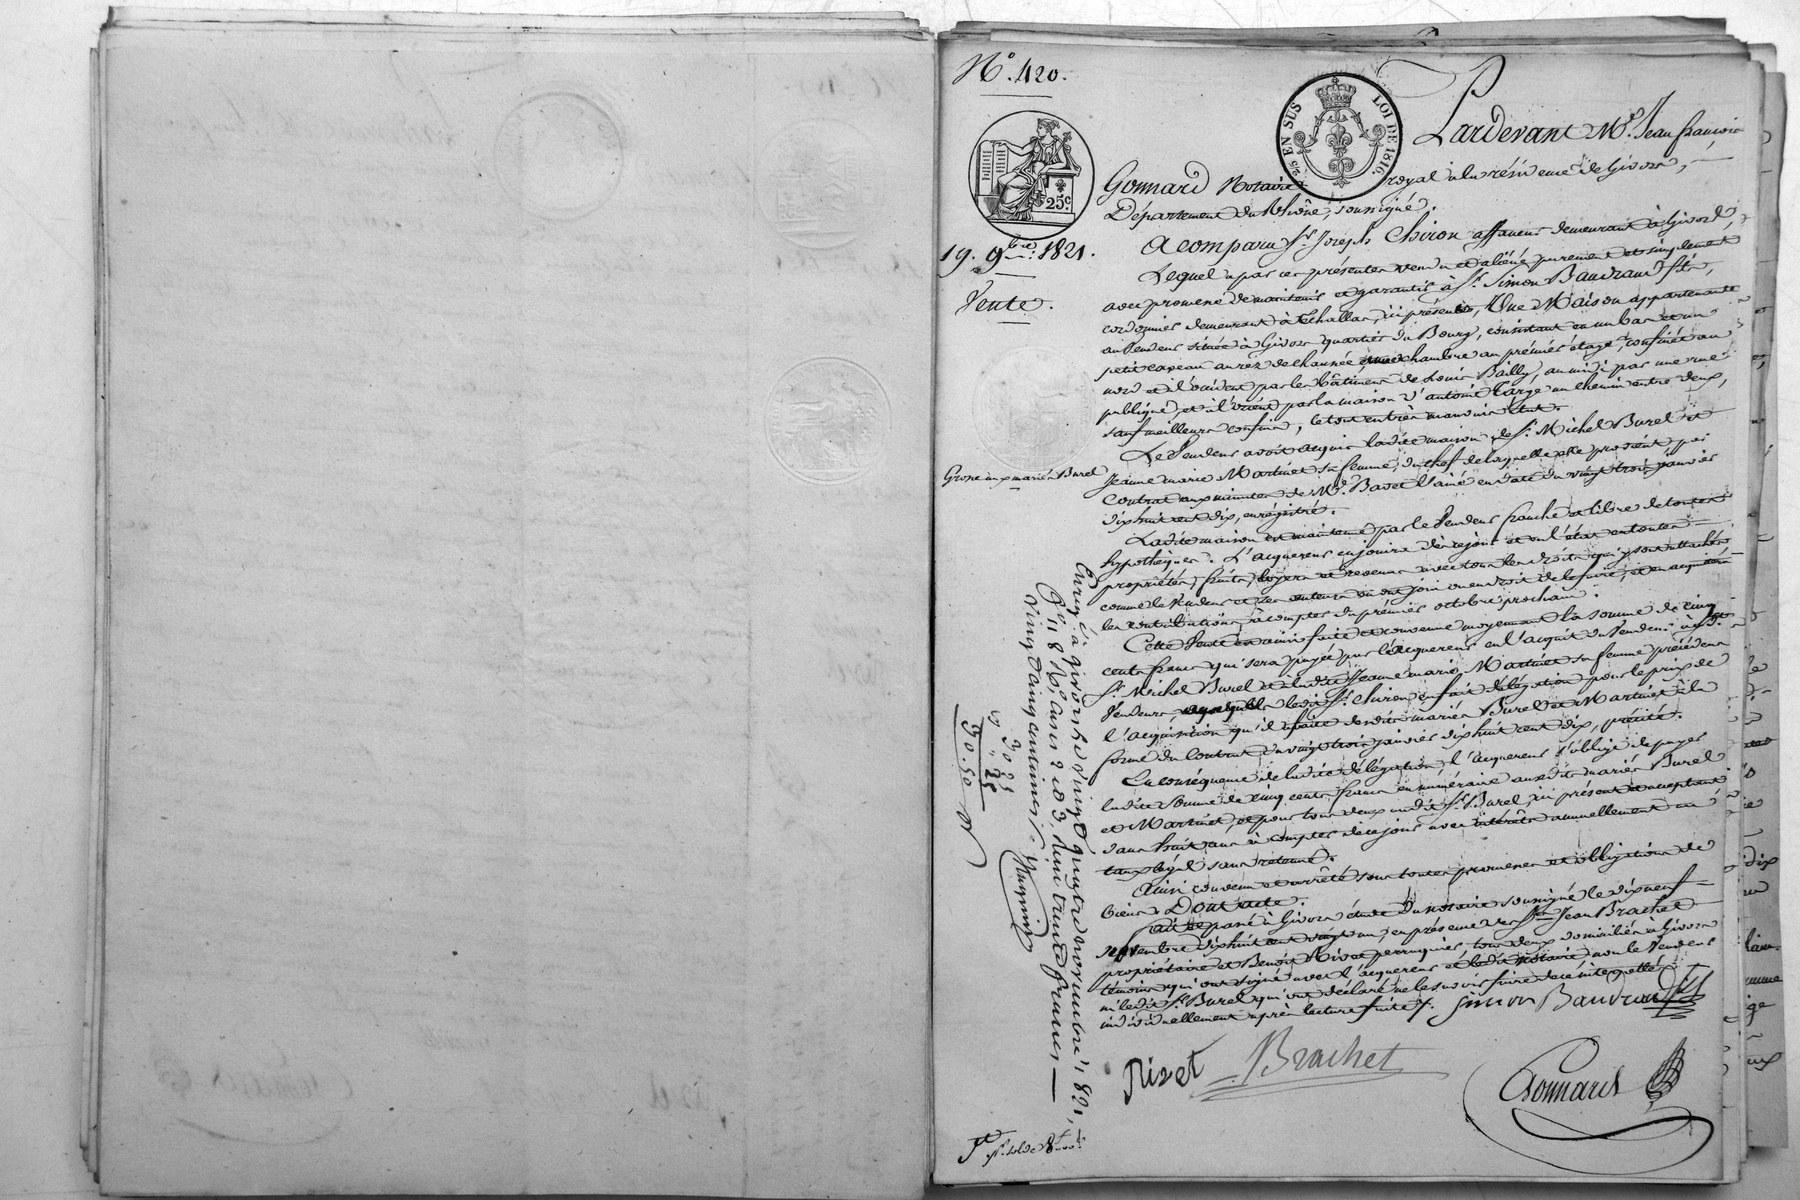 N.° 420.
2/5 EN SUS LOI DE 1816.
25.c
19. 9.bre 1821.
Vente.
Grosse aux mariés Burel
Pardevant M.e Jean françois
Gonnard Notaire royal à la résidence de Givors,
Département du Rhône, soussigné.
A comparu S.r Joseph Chiron affaneur demeurant à Givors,
Lequel a par ces présentes vendu et aliéné purement et simplement
avec promesse de maintenir et garantir à S.r Simon Baudrand fils,
cordonnier demeurant à Echallas, ici présent, Une Maison appartenante
au Vendeur située à Givors quartier du Bourg, consistant en un bas et un
petit caveau au rez de chaussée, chambre au premier étage, confinée au
nord et à l'occident par les bâtimens de Louis Bailly, au midi par une rue
publique, et à l'orient par la maison d'antoine Targe un chemin entre deux,
sauf meilleurs confins, le tout en très mauvais état.
Le Vendeur avoit acquis ladite maison de S.r Michel Burel et
Jeanne marie Martinet sa femme, du chef de laquelle elle provient par
Contrat aux minutes de M.e Badet L'ainé en date du vingt trois janvier
dix huit cent dix, enregistré.
Ladite maison est maintenue par le Vendeur franche et libre de toutes
hypothèques. L'acquereur en jouira dès ce jour et en l'état en toutes
propriétés, fruits, loyers et revenus avec tous les droits qui y sont attachés
comme le Vendeur et ses auteurs en ont joui ou eu droit de le faire, et en acquittera
les contributions, à compter du premier octobre prochain.
Cette Vente est ainsi faite et convenue moyennant la somme de cinq
cents francs qui sera payée par l'acquereur en l'acquit du Vendeur auxdits
S.r Michel Burel et à ladite Jeanne marie Martinet sa femme précédens
Vendeurs, ledit S.r Chiron en fait délégation pour le prix de
l'acquisition qu'il a faite desdits mariés Burel et Martinet à la
forme du Contrat du vingt trois janvier dix huit cent dix, précité.
En conséquence de ladite délégation, l'acquereur s'oblige de payer
ladite somme de cinq cents francs en numéraire auxdits mariés Burel
et Martinet, et pour tous deux audit S.r Burel, ici présent et acceptant
dans huit ans à compter de ce jour avec intérêts annuellement au
taux légal sans retenue.
Ainsi convenu et arrêté sous toutes promesses et obligations de
biens. Dont acte.
fait et passé à Givors étude du notaire soussigné le dix neuf
novembre dix huit cent vingt un, en présence des S.rs Jean Brachet
propriétaire et Benoit Rivet perruquier tous deux domiciliés à Givors
témoins qui ont signé avec l'acquereur et ledit notaire, non le Vendeur
ni ledit S.r Burel qui ont déclaré ne le savoir faire de ce interpellés
individuellement après lecture faite. Simon Baudrand fils
Rivet Brachet Gonnard
Enreg.é à givors le vingt quatre novembre 1821,
f.° 118 R.°, cases 2 et 3 reçu trente francs
vingt cinq centimes.